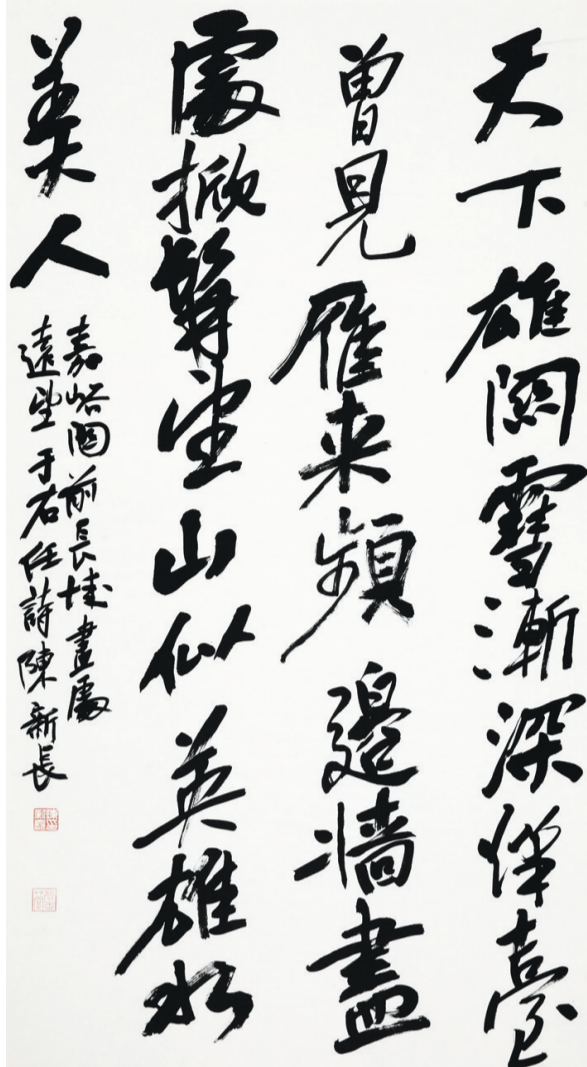 天下雄關雪漸深烽臺
曾見雁来頻邊牆盡
處掀髯望山似英雄水
美人
嘉峪關前長城盡處
遠望于右任詩陳新長